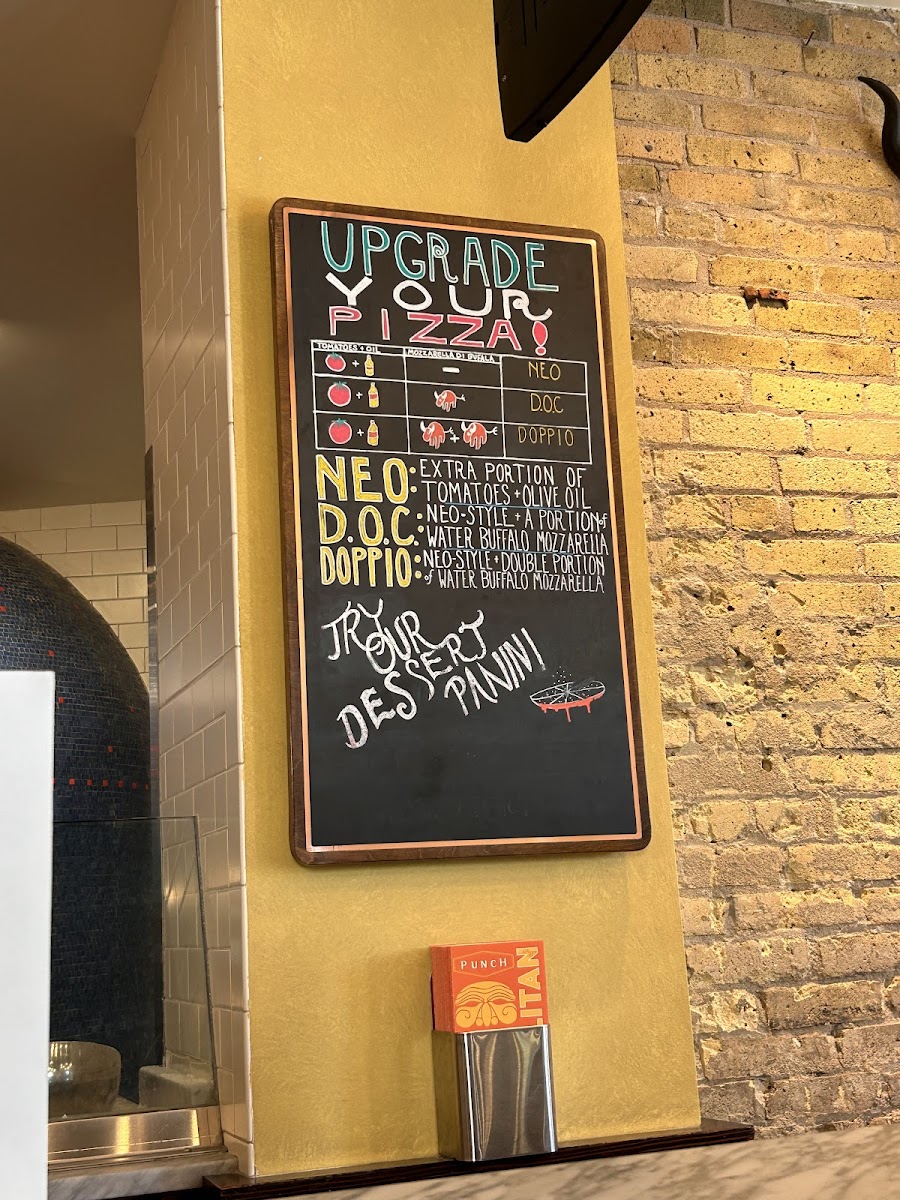 UPGRADE
YOUR
PIZZA!
TOMATOES + OIL MOZZARELLA DI BUFALA
+ - NEO
+ D.O.C
+ + DOPPIO
NEO: EXTRA PORTION OF
TOMATOES + OLIVE OIL
D.O.C.: NEO-STYLE + A PORTION of
WATER BUFFALO MOZZARELLA
DOPPIO: NEO-STYLE + DOUBLE PORTION
of WATER BUFFALO MOZZARELLA
TRY
OUR
DESSERT
PANINI
PUNCH
LITAN